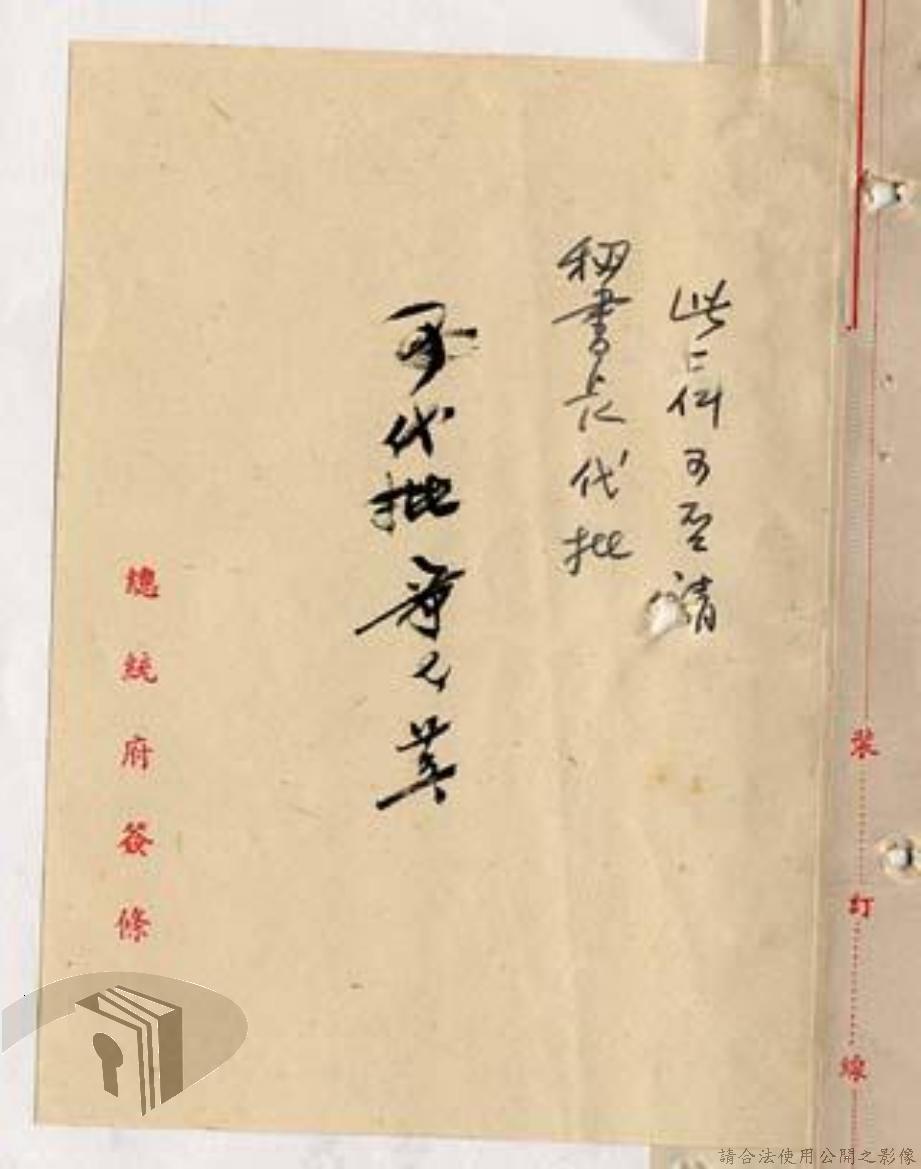 此二件可否請
秘書長代批
可代批
總統府簽條
裝訂線
請合法使用公開之影像